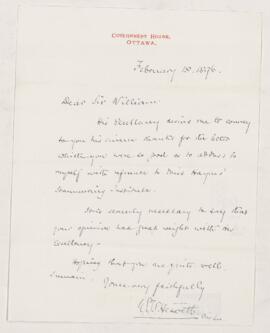 GOVERNMENT HOUSE,
OTTAWA.
February 18, 1876.
Dear Sir William.
His Excellency desires me to convey
to you his sincere thanks for the letter
which you were so good as to address to
myself with reference to Miss
Institute.
It is scarcely necessary to say that
your opinion had great weight with His
Excellency.
Hoping that you are quite well.
I remain
Yours very faithfully